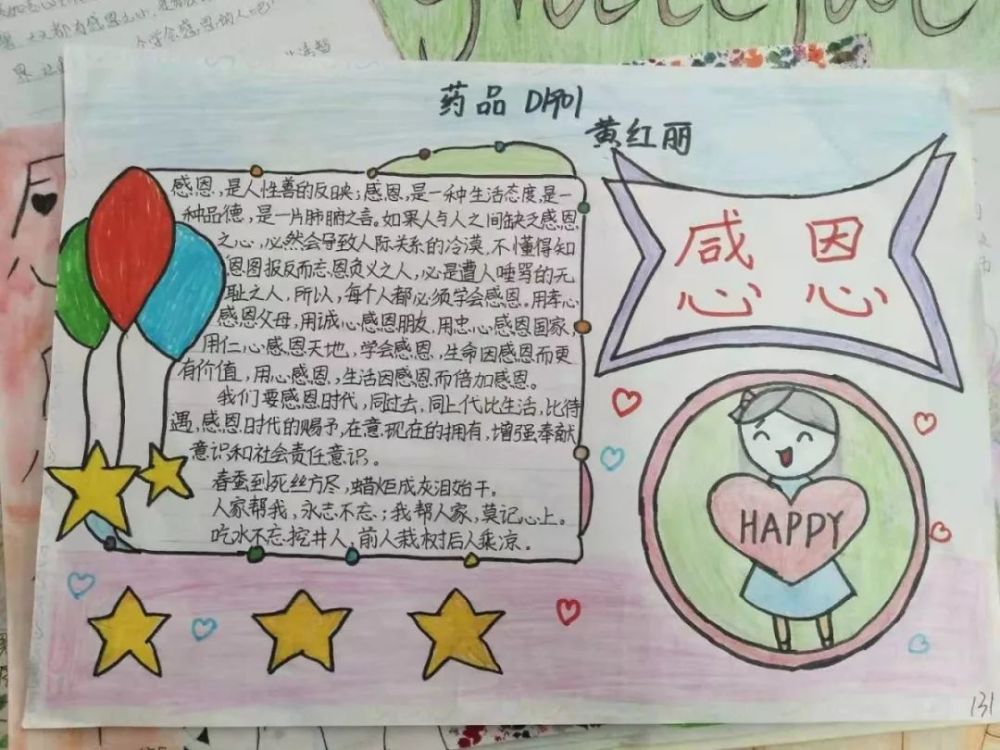 药品 D1901
黄红丽
感恩，是人性善的反映；感恩，是一种生活态度，是一
种品德，是一片肺腑之言。如果人与人之间缺乏感恩
之心，必然会导致人际关系的冷漠，不懂得知
恩图报反而忘恩负义之人，必是遭人唾骂的无
耻之人，所以，每个人都必须学会感恩。用孝心
感恩父母，用诚心感恩朋友，用忠心感恩国家，
用仁心感恩天地，学会感恩，生命因感恩而更
有价值，用心感恩，生活因感恩而倍加感恩。
我们要感恩时代，同过去，同上代比生活，比待
遇，感恩时代的赐予，在意现在的拥有，增强奉献
意识和社会责任意识。
春蚕到死丝方尽，蜡炬成灰泪始干。
人家帮我，永志不忘；我帮人家，莫记心上。
吃水不忘挖井人，前人栽树后人乘凉。
感恩
HAPPY
131